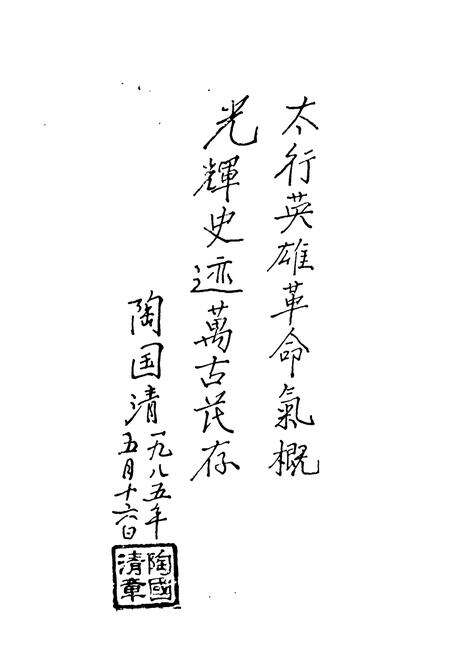 太行英雄革命氣概
光輝史迹萬古茂存
陶国清
一九八五年
五月十六日
陶國清章